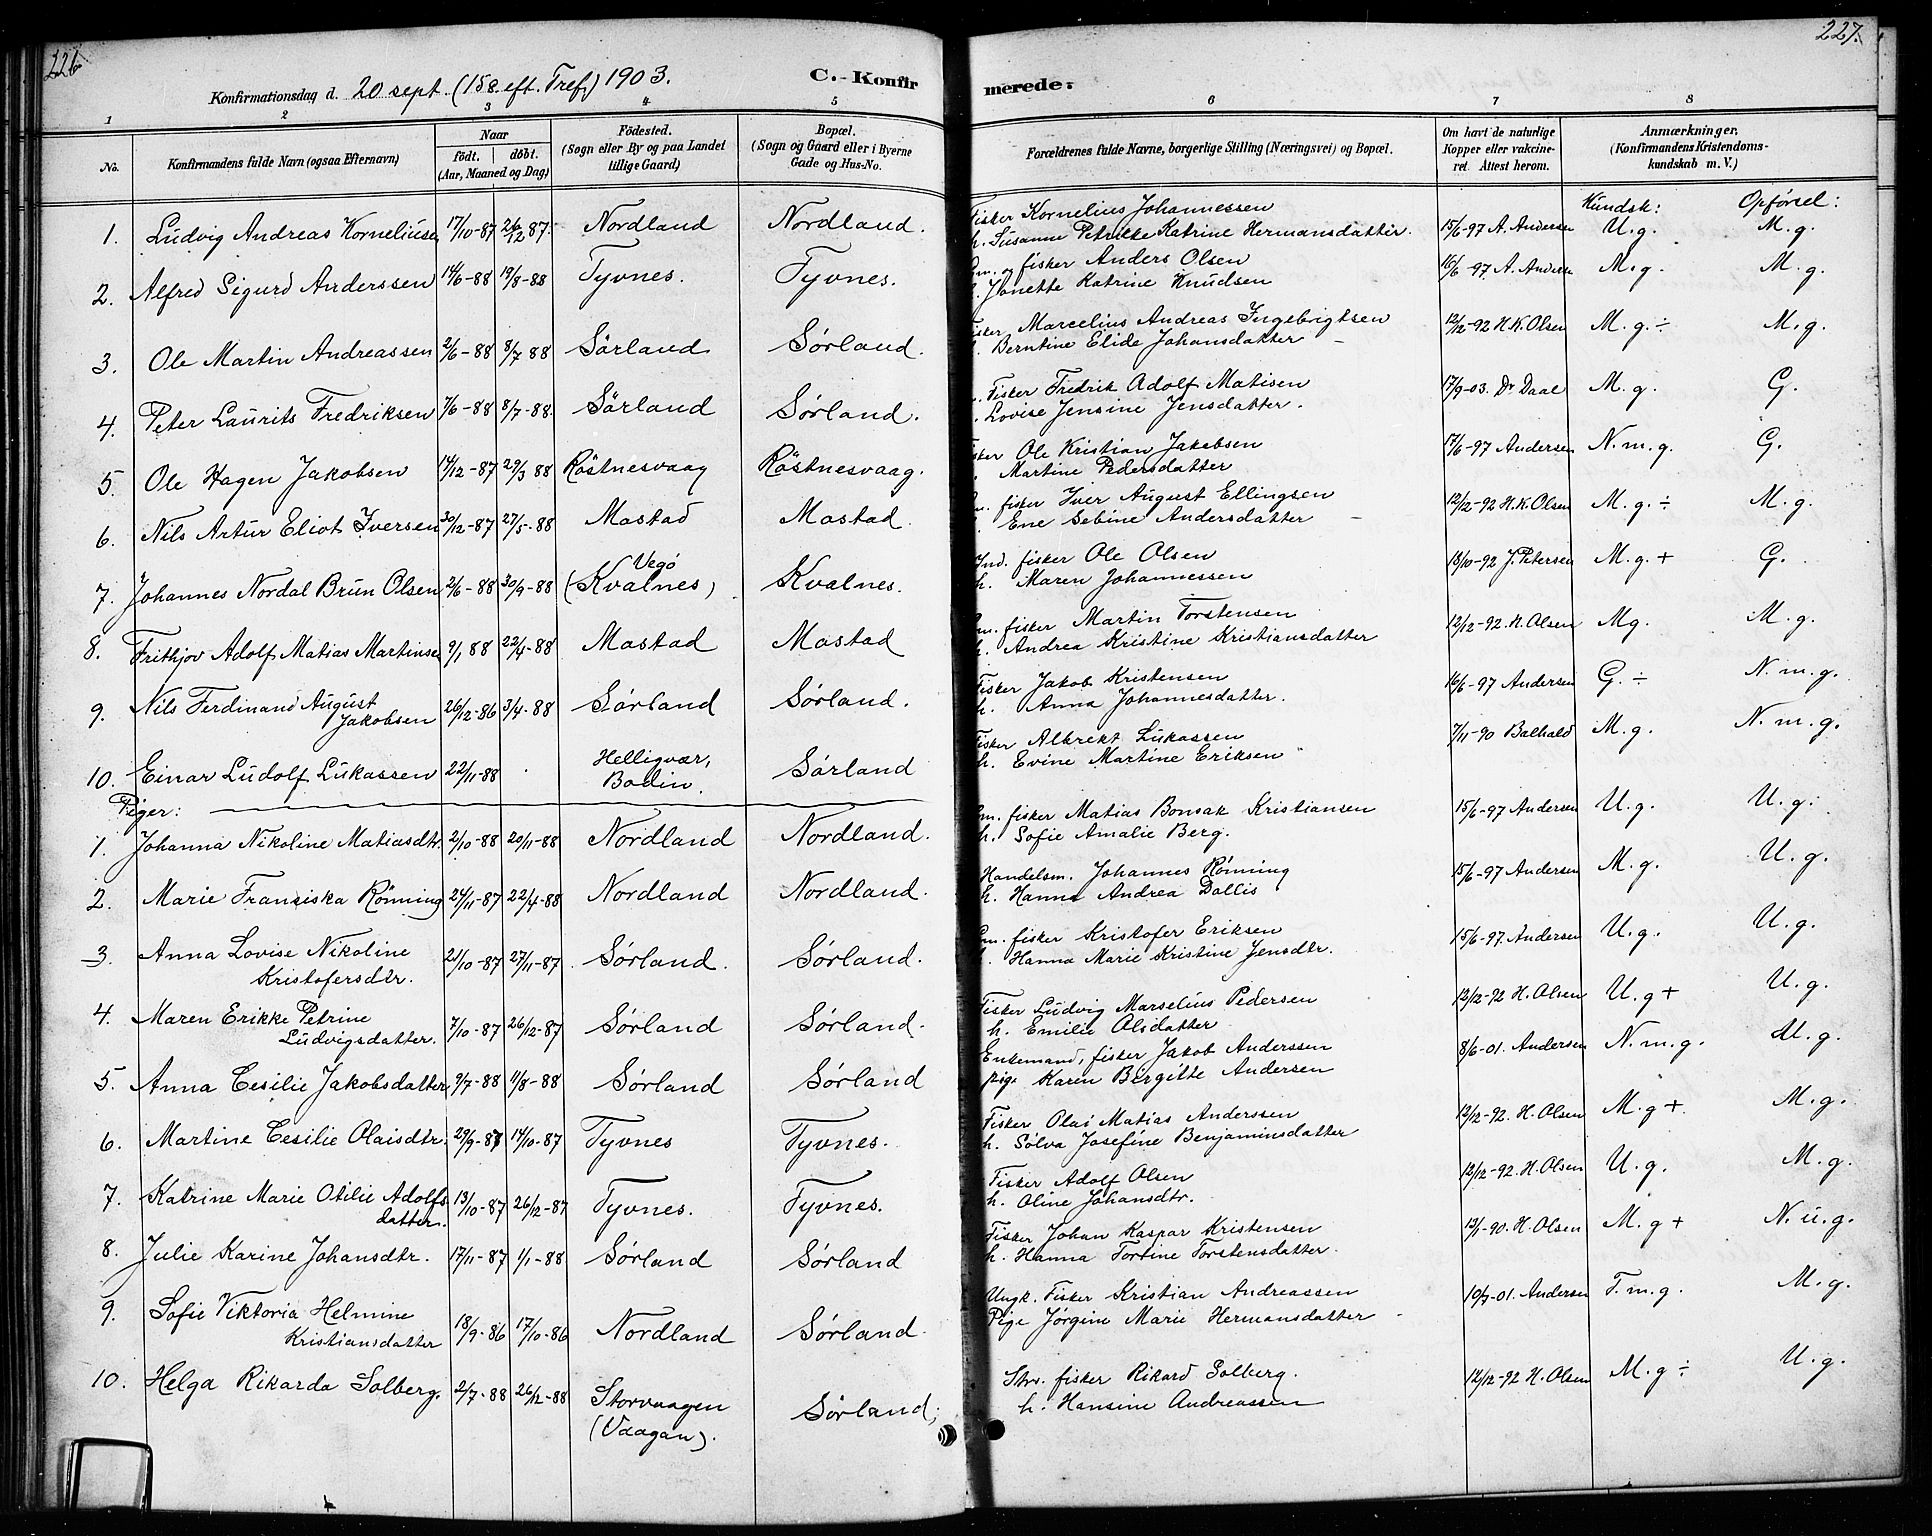 226
227.
Konfirmationsdag d. 20 sept. (15 s. eft. Tref.) 1903. C.-Konfirmerede.
1 2 3 4 5 6 7 8
No.
Konfirmandens fulde Navn (ogsaa Efternavn)
Naar
födt. | döbt.
(Aar, Maaned og Dag)
Födested.
(Sogn eller By og paa Landet
tillige Gaard)
Bopæl.
(Sogn og Gaard eller i Byerne
Gade og Hus-No.
Forældrenes fulde Navne, borgerlige Stilling (Næringsvei) og Bopæl.
Om havt de naturlige
Kopper eller vakcine-
ret. Attest herom.
Anmærkninger.
(Konfirmandens Kristendoms-
kundskab m. V.)
Kundsk: Opførsel:
1. Ludvig Andreas Korneliusen 17/10-87 26/12 87. Nordland Nordland. Fisker Kornelius Johannessen
h. Susanne Petrikke Katrine Hermansdatter. 15/6-97 A. Andersen U.g. M.g.
2. Alfred Sigurd Anderssen 14/6-88 19/8-88 Tyvnes. Tyvnes. Gm. og fisker Anders Olsen
h. Janette Katrine Knudsen 16/6-97 A. Andersen M.g. M.g.
3. Ole Martin Andreassen 2/6-88 8/7 88 Sørland Sørland. Fisker Marcelius Andreas Ingebrigtsen
h. Berntine Elide Johansdatter 12/12-92 H.K. Olsen M.g. ÷ M.g.
4. Peter Laurits Fredriksen 7/6-88 8/7-88. Sørland Sørland. Fisker Fredrik Adolf Matisen
h. Lovise Jensine Jensdatter. 17/9-03. Dr Daae M.g. G.
5. Ole Hagen Jakobsen 14/12-87 29/3 88 Röstnesvaag Röstnesvaag. Fisker Ole Kristian Jakobsen
Martine Pedersdatter 17/6-97 Andersen N.m.g. G.
6. Nils Artur Eliot Iversen 30/12-87 27/5-88 Mastad Mastad. Gm. fisker Iver August Ellingsen
h. Ene Sebine Andersdatter 12/12-92 H.K. Olsen M.g. ÷ M.g.
7. Johannes Nordal Brun Olsen 2/6-88 30/9-88 Vegø
(Kvalnes) Kvalnes. Ind. fisker Ole Olsen
h. Maren Johannessen 18/10-92 J. Petersen M.g. + G.
8. Frithjov Adolf Matias Martinsen 9/1 88 22/4-88 Mastad Mastad Gm. fisker Martin Torstensen
h. Andrea Kristine Kristiansdatter 12/12-92. H. Olsen Mg. M.g.
9. Nils Ferdinand August
Jakobsen 26/12-86 3/4-88 Sørland Sørland. Fisker Jakob Kristensen
h. Anna Johannesdatter. 16/6-97 Andersen G. ÷ N.m.g.
10. Einar Ludolf Lukassen 22/11-88 Helligvær,
Bodin. Sørland Fisker Albrekt Lukassen
h. Evine Martine Eriksen 7/11-90 Balhald M.g. N.m.g.
Piger:
1. Johanna Nikoline Matiasdtr. 2/10-88 20/11-88 Nordland Nordland. Gm. fisker Matias Bonsak Kristiansen
h. Sofie Amalie Berg. 15/6-97 Andersen U.g. U.g.
2. Marie Fransiska Rønning 24/11-87 22/4-88 Nordland Nordland. Handelsm. Johannes Rønning
h. Hanna Andrea Dallis 15/6-97 Andersen M.g. U.g.
3. Anna Lovise Nikoline
Kristofersdtr. 21/10-87 27/11-87 Sørland. Sørland. Gm. fisker Kristofer Eriksen
h. Hanna Marie Kristine Jensdtr. 15/6-97. Andersen U.g. U.g.
4. Maren Erikke Petrine
Ludvigsdatter. 7/10-87 26/12-87 Sørland Sørland. Fisker Ludvig Marselius Pedersen
h. Emilie Olsdatter 12/12-92 H. Olsen U.g + U.g.
5. Anna Cesilie Jakobsdatter 9/7-88 11/8-88 Sørland Sørland Enkemand, fisker Jakob Anderssen
pige Karen Bergitte Andersen 8/6-01. Andersen N.m.g. U.g.
6. Martine Cesilie Olaisdtr. 29/9-87 14/10-87 Tyvnes Tyvnes. Fisker Olai Matias Anderssen
h. Sølva Josefine Benjaminsdatter 12/12-92. H. Olsen M.g +. M.g.
7. Katrine Marie Otilie Adolfs
datter. 13/10-87 26/12-87 Tyvnes. Tyvnes. Fisker Adolf Olsen
h. Oline Johansdtr. 12/12-92. H. Olsen U.g. M.g.
8. Julie Karine Johansdtr. 17/11-87 1/1-88 Sørland Sørland Fisker Johan Kaspar Kristensen
h. Hanna Tortine Torstensdatter. 13/1-90. H. Olsen M.g + N.u.g.
9. Sofie Viktoria Helmine
Kristiansdatter 18/9-86 17/10-86 Nordland Sørland. Ungk. Fisker Kristian Andreassen
Pige Jørgine Marie Hermansdatter 10/7-01. Andersen T.m.g. M.g.
10. Helga Rikarda Solberg. 2/7-88 26/12-88 Storvaagen
(Vaagan). Sørland; Strs. fisker Rikard Solberg.
h. Hansine Andreassen 12/12-92 H. Olsen M.g ÷ U.g.